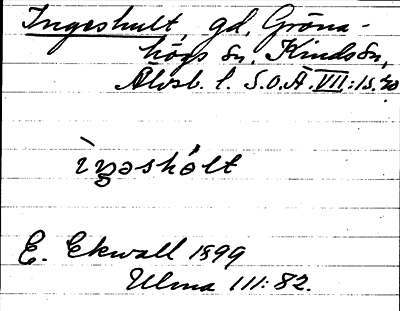 Ingeshult, gd, Gröna-
högs sn, Kinds hd,
Älvsb. l. S.O.Ä. VII:1 s. 40
ìŋəshól̀t
E. Ekwall 1899
Ulma 111:82.